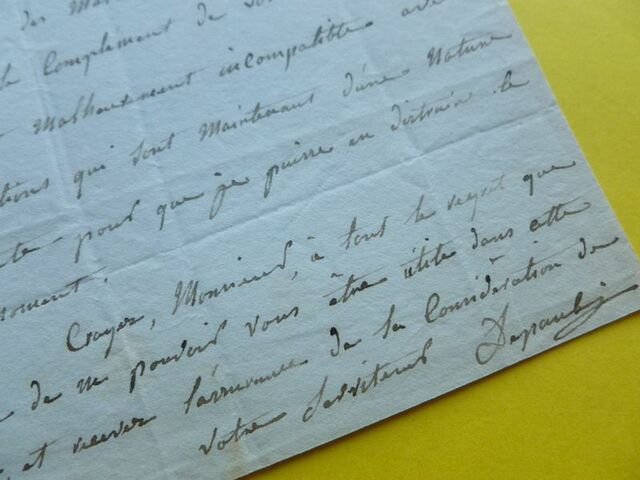 des
le Complément de
Malheureusement incompatible avec
qui sont Maintenant d'une Nature
pour que je puisse en distraire le
moment.
Croyez, Monsieur, à tout le regret que
de ne pouvoir vous être utile dans cette
et recevez l'assurance de la Considération de
votre Serviteur